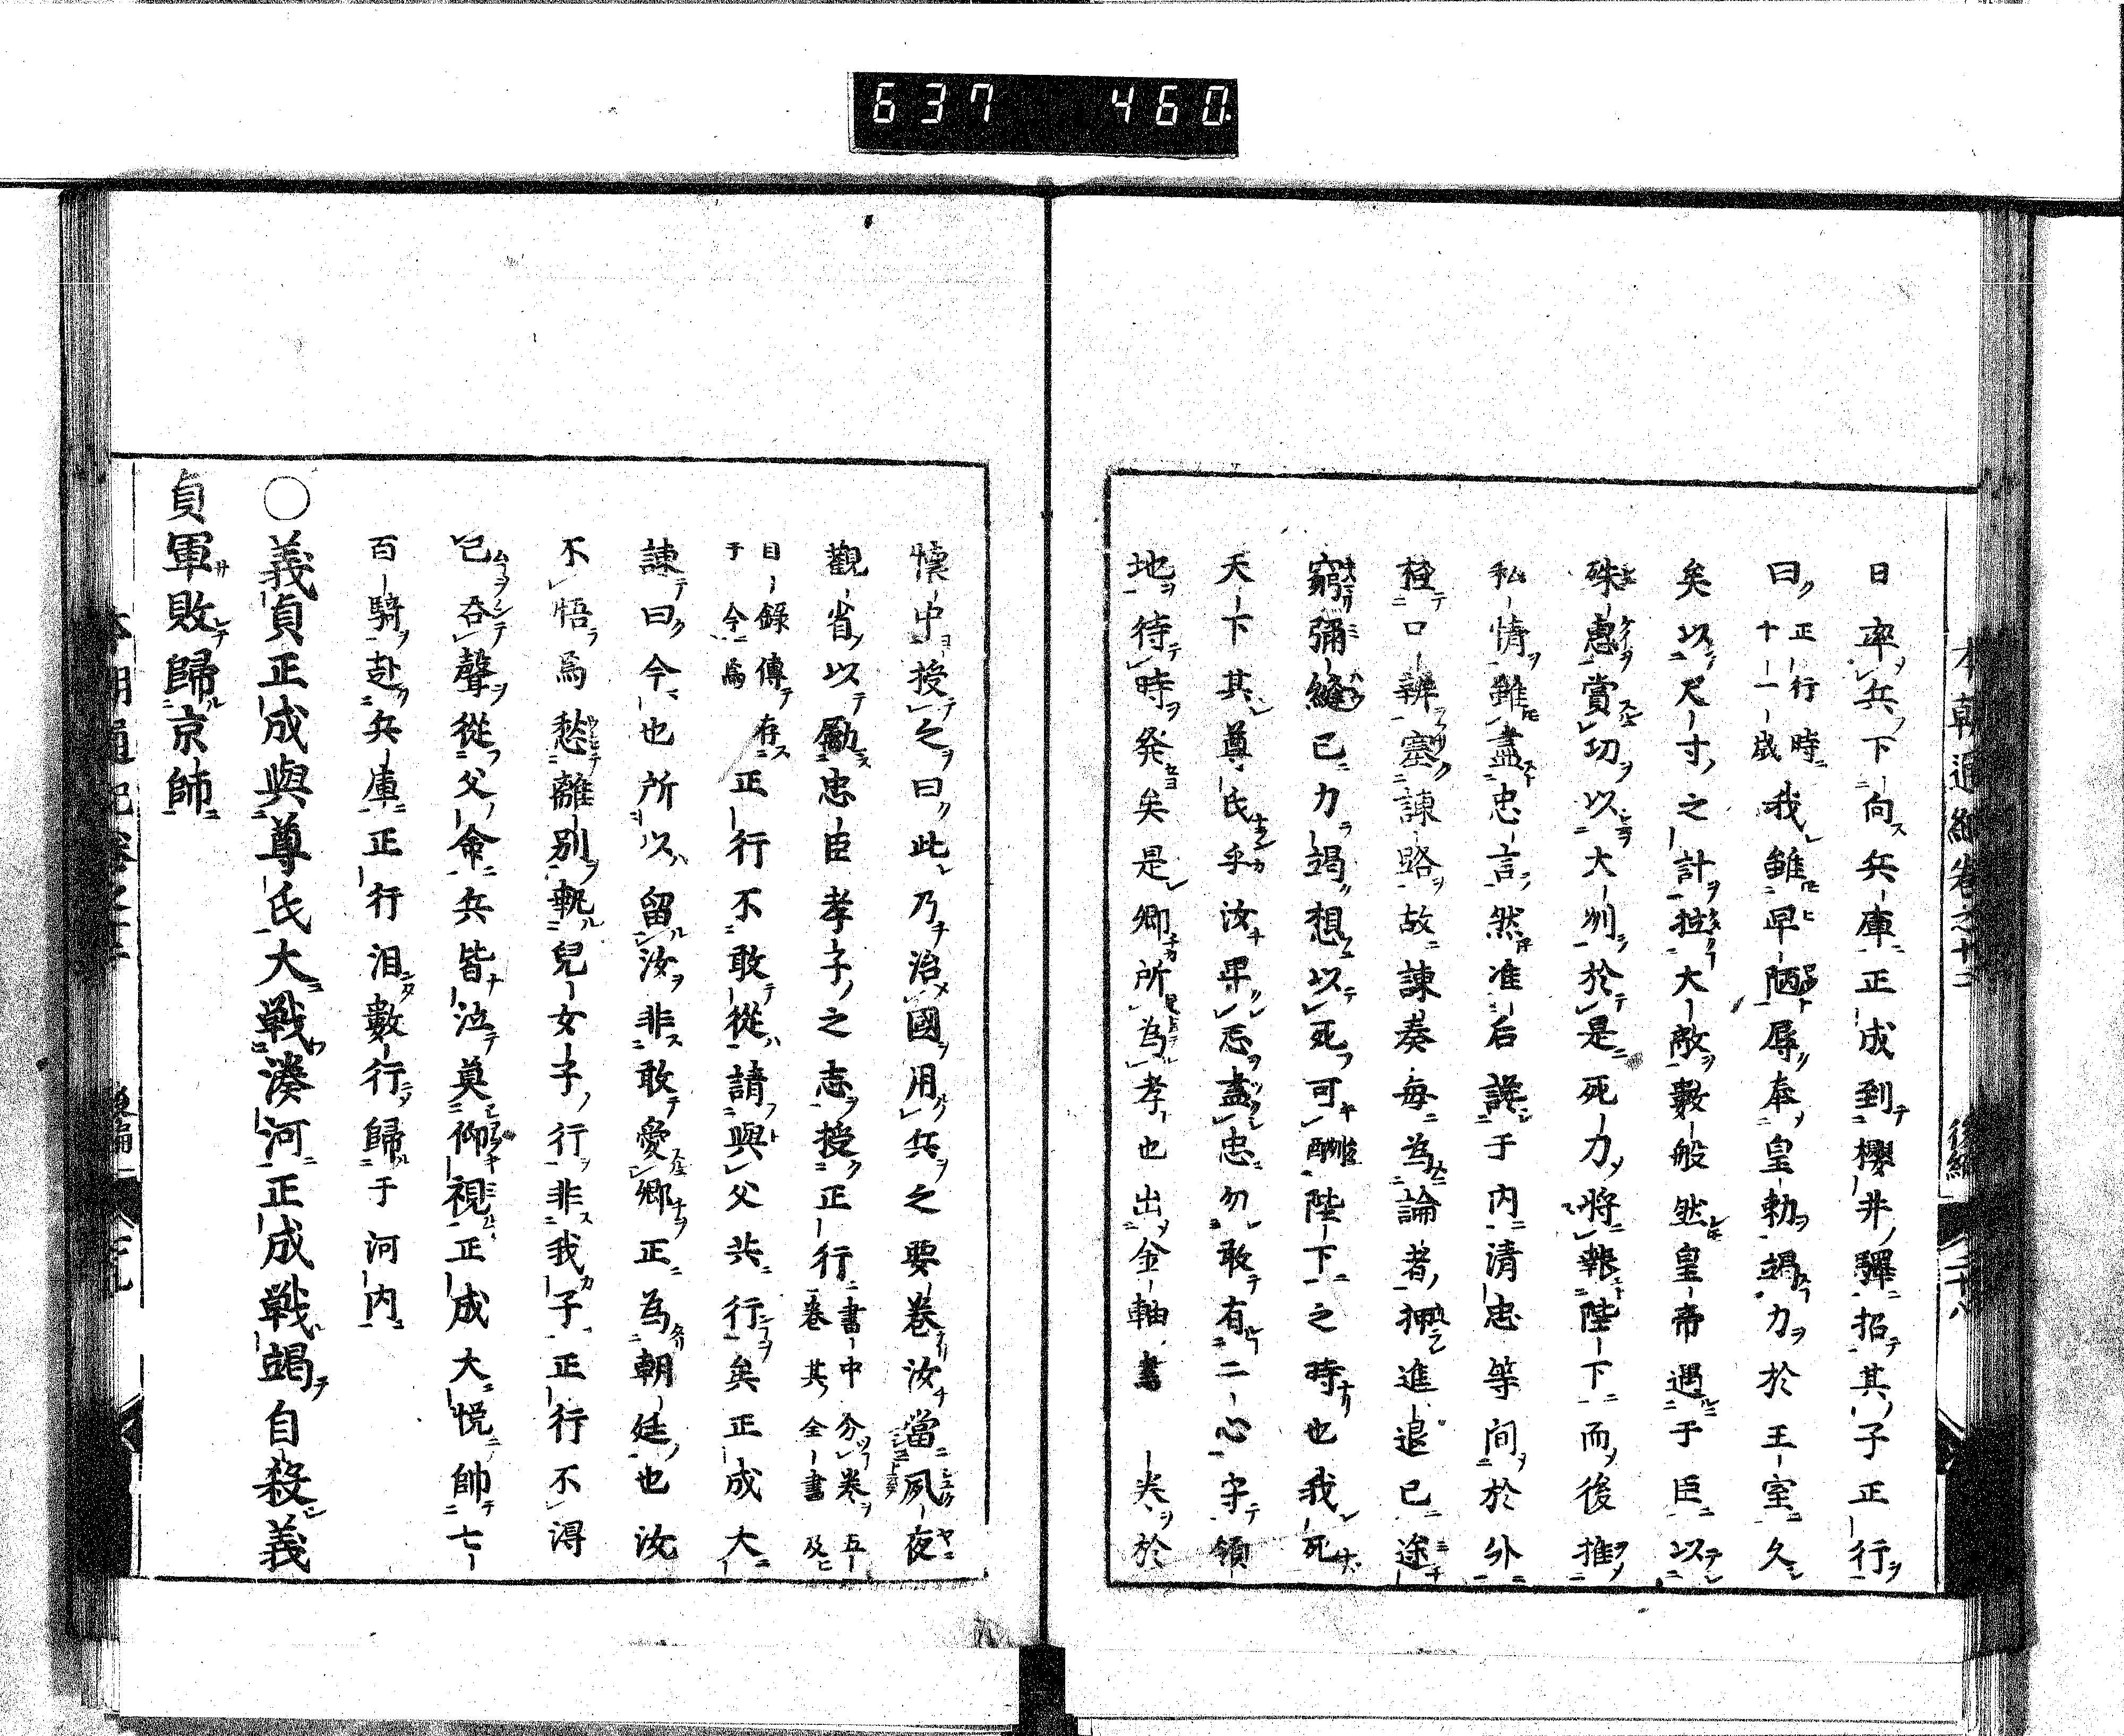 637 460
本朝通紀卷之十二 後編 二十八
日率兵下向兵庫正成到櫻井驛招其子正行
曰正行時十一歳我雖卑陋辱奉皇勅竭力於王室久
矣以尺寸之計拉大敵數般然皇帝遇于臣以
殊惠賞切以大州於是死力將報陛下而後推
私情雖盡忠言然准后謀于内清忠等間於外
極口辨塞諌路故諌奏每為論者押進退已途
窮彌縫已力竭想以死可酬陛下之時也我死
天下其尊氏乎汝果忍盡忠勿敢有二心守領
地待時発矣是卿所為孝也出金軸書一卷於
懷中授之曰此乃治國用兵之要卷汝當夙夜
觀省以勵忠臣孝子之志授正行書中分卷五卷其全書及
目錄傳存于今焉正行不敢從請與父共行矣正成大
諌曰今也所以留汝非敢愛卿正為朝廷也汝
不悟焉愁離別執兒女子行非我子正行不得
已呑聲從父命兵皆泣莫仰視正成大慌帥七
百騎赴兵庫正行泪數行歸于河内
○義貞正成與尊氏大戰湊河正成戰竭自殺義
貞軍敗歸京師
本朝通紀卷之十 後編